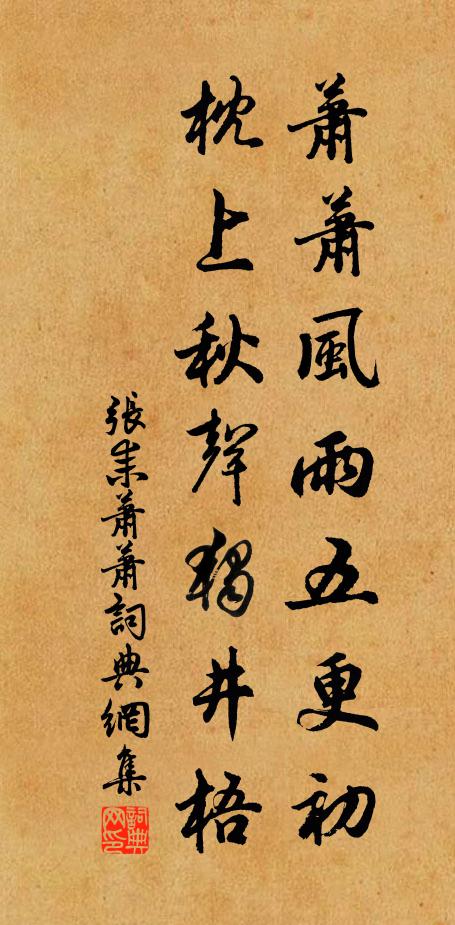 蕭蕭風雨五更初
枕上秋聲獨井梧
張耒蕭蕭詞典網集
詞典网印